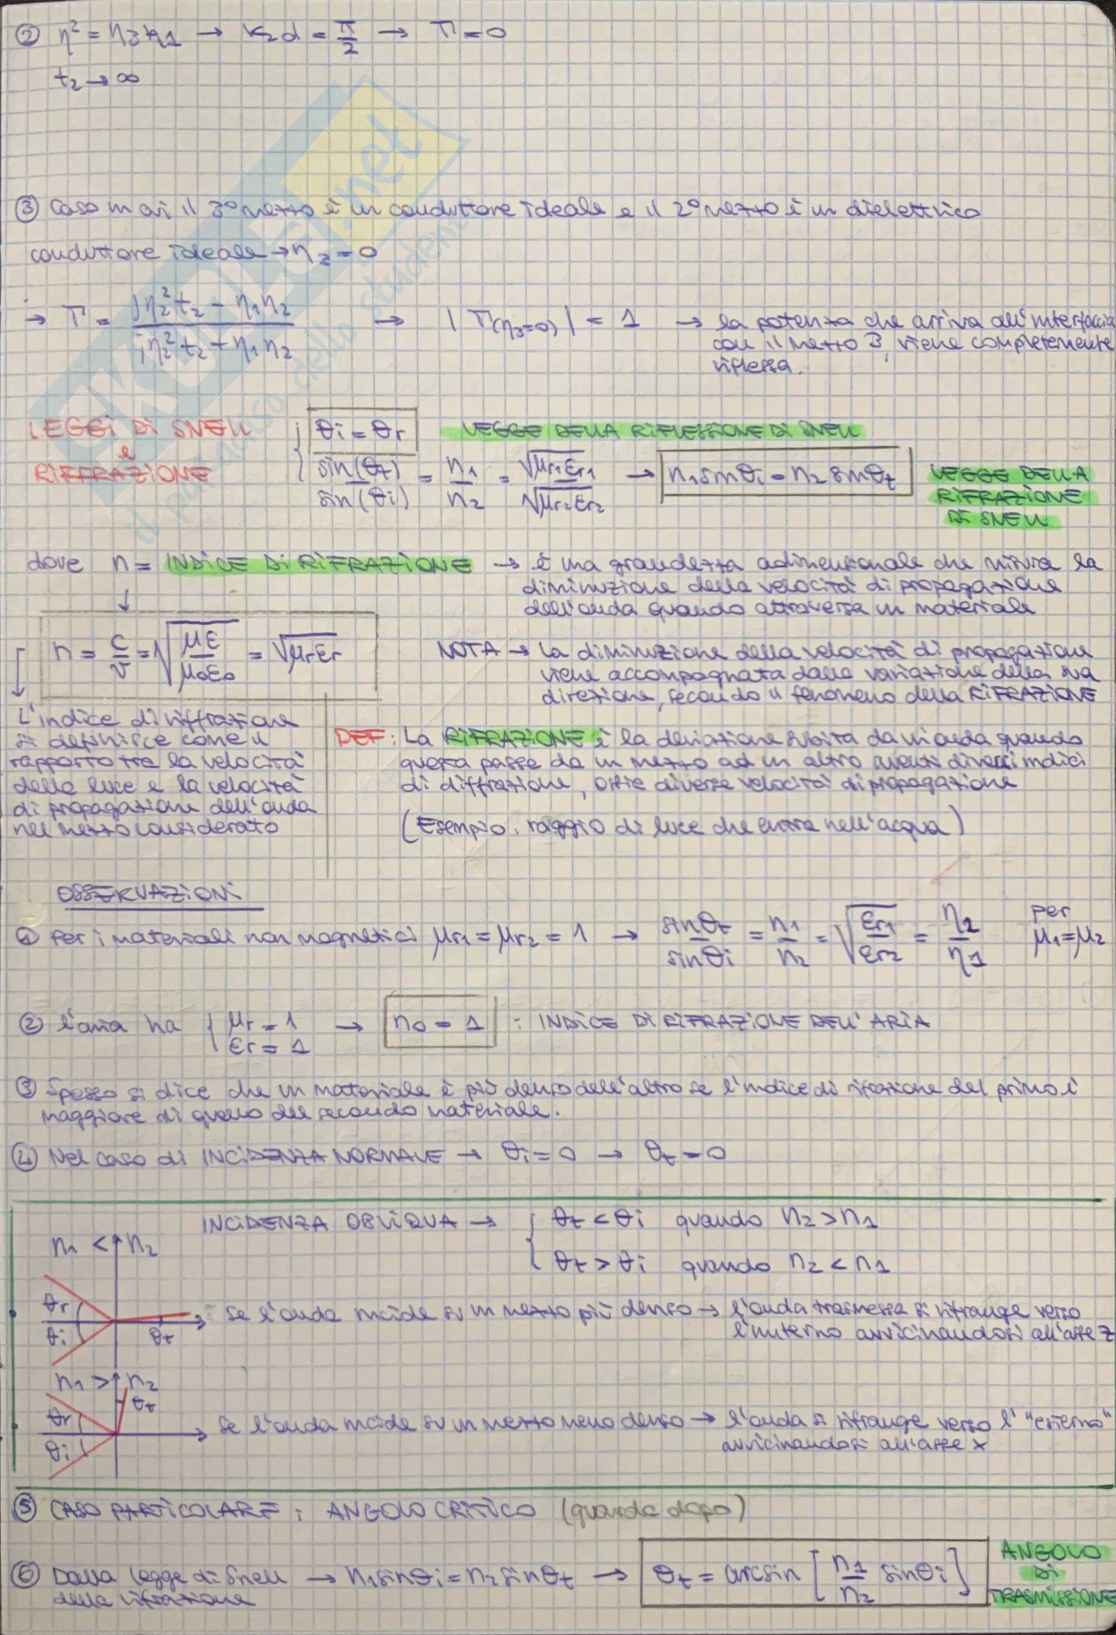 ② η² = η₃η₁ → k₂d = π/2 → Γ = 0
t₂ → ∞
③ Caso in cui il 3° mezzo è un conduttore ideale e il 2° mezzo è un dielettrico
conduttore ideale → η₃ = 0
→ Γ = (jη₂²t₂ − η₁η₂)/(jη₂²t₂ + η₁η₂) → |Γ(η₃=0)| = 1 → la potenza che arriva all'interfaccia
con il mezzo 3, viene completamente
riflessa.
LEGGI DI SNELL
e
RIFRAZIONE
{ θi = θr LEGGE DELLA RIFLESSIONE DI SNELL
sin(θt)/sin(θi) = n₁/n₂ = √μr₁εr₁/√μr₂εr₂ → n₁sinθi = n₂sinθt LEGGE DELLA
RIFRAZIONE
DI SNELL
dove n = INDICE DI RIFRAZIONE → è una grandezza adimensionale che misura la
diminuzione della velocità di propagazione
dell'onda quando attraversa un materiale
n = c/v = √(με/μ₀ε₀) = √μrεr
NOTA → La diminuzione della velocità di propagazione
viene accompagnata dalla variazione della sua
direzione, secondo il fenomeno della RIFRAZIONE
L'indice di riffrazione
si definisce come il
rapporto tra la velocità
della luce e la velocità
di propagazione dell'onda
nel mezzo considerato
DEF: La RIFRAZIONE è la deviazione subita da un'onda quando
questa passa da un mezzo ad un altro aventi diversi indici
di diffrazione, oltre diverse velocità di propagazione
(Esempio: raggio di luce che entra nell'acqua)
OSSERVAZIONI
① Per i materiali non magnetici μr₁ = μr₂ = 1 → sinθt/sinθi = n₁/n₂ = √(εr₁/εr₂) = η₂/η₁ per
μ₁=μ₂
② l'aria ha { μr = 1
εr = 1 → n₀ = 1 : INDICE DI RIFRAZIONE DELL'ARIA
③ Spesso si dice che un materiale è più denso dell'altro se l'indice di rifrazione del primo è
maggiore di quello del secondo materiale.
④ Nel caso di INCIDENZA NORMALE → θi = 0 → θt = 0
INCIDENZA OBLIQUA → { θt < θi quando n₂ > n₁
θt > θi quando n₂ < n₁
n₁ < n₂
θr
θi
θt
: se l'onda incide su un mezzo più denso → l'onda trasmessa si rifrange verso
l'interno avvicinandosi all'asse z
n₁ > n₂
θt
θr
θi
se l'onda incide su un mezzo meno denso → l'onda si rifrange verso l'"esterno"
avvicinandosi all'asse x
⑤ CASO PARTICOLARE: ANGOLO CRITICO (guarda dopo)
⑥ Dalla legge di Snell → n₁sinθi = n₂sinθt → θt = arcsin [n₁/n₂ sinθi]
della rifrazione
ANGOLO
DI
TRASMISSIONE